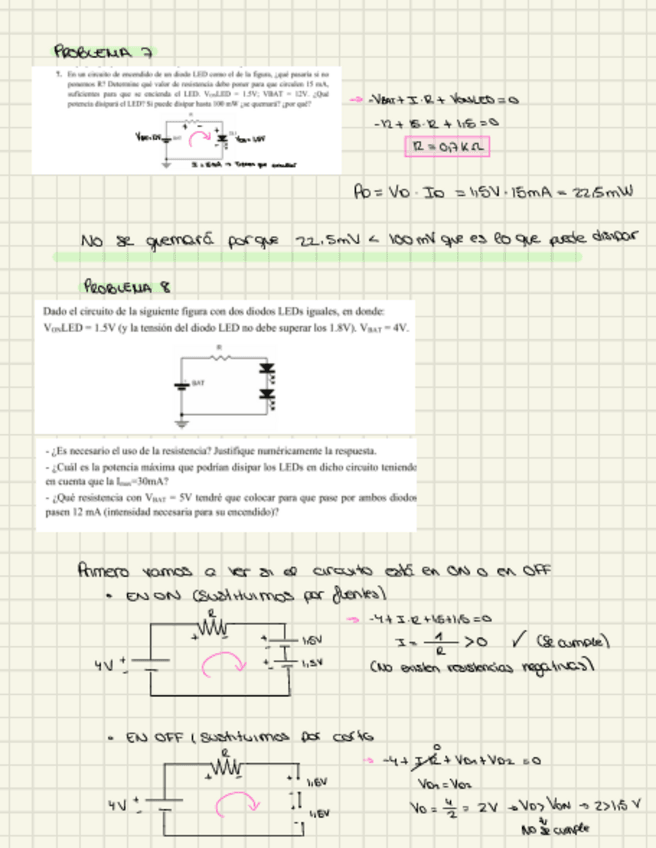 PROBLEMA 7
7. En un circuito de encendido de un diodo LED como el de la figura, ¿qué pasaría si no
ponemos R? Determine qué valor de resistencia debe poner para que circulen 15 mA,
suficientes para que se encienda el LED. VonLED = 1.5V; VBAT = 12V. ¿Qué
potencia disipará el LED? Si puede disipar hasta 100 mW ¿se quemará? ¿por qué?
→ -VBAT + I·R + VonLED = 0
-12 + 15·R + 1,5 = 0
R = 0,7 KΩ
PD = VD · ID = 1,5V · 15mA = 22,5mW
No se quemará porque 22,5mV < 100mV que es lo que puede disipar
PROBLEMA 8
Dado el circuito de la siguiente figura con dos diodos LEDs iguales, en donde:
VONLED = 1.5V (y la tensión del diodo LED no debe superar los 1.8V). VBAT = 4V.
R
BAT
- ¿Es necesario el uso de la resistencia? Justifique numéricamente la respuesta.
- ¿Cuál es la potencia máxima que podrían disipar los LEDs en dicho circuito teniendo
en cuenta que la Imax=30mA?
- ¿Qué resistencia con VBAT = 5V tendré que colocar para que pase por ambos diodos
pasen 12 mA (intensidad necesaria para su encendido)?
Primero vamos a ver si el circuito está en ON o en OFF
• EN ON (Sustituimos por fuentes)
R
4V + 1,5V
+ 1,5V
→ -4 + I·R + 1,5 + 1,5 = 0
I = 1/R > 0 ✓ (Se cumple)
(No existen resistencias negativas)
• EN OFF (Sustituimos por corto
R
4V + 1,5V
1,5V
→ -4 + I·R + VD1 + VD2 = 0
0
VD1 = VD2
VD = 4/2 = 2V → VD > VON → 2 > 1,5 V
No se cumple